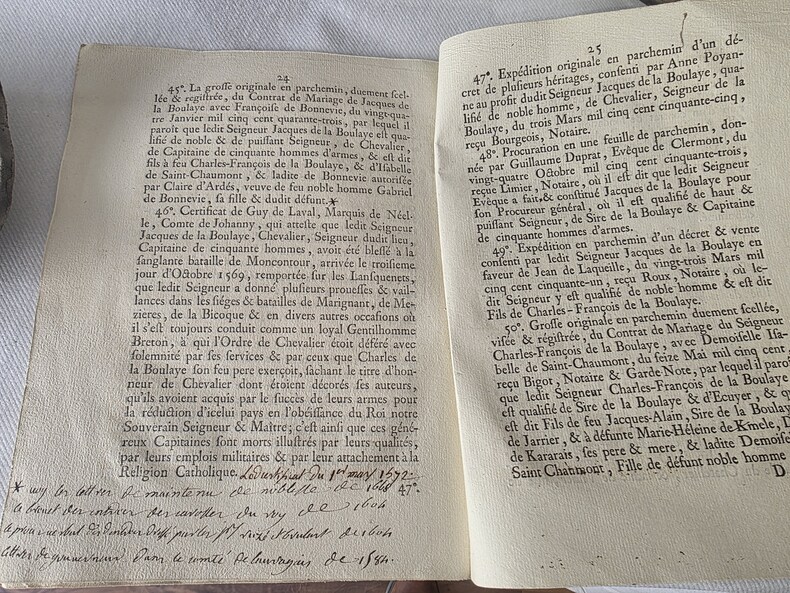 24
45°. La grosse originale en parchemin, duement scel-
lée & registrée, du Contrat de Mariage de Jacques de
la Boulaye avec Françoise de Bonnevie, du vingt-qua-
tre Janvier mil cinq cent quarante-trois, par lequel il
paroît que ledit Seigneur Jacques de la Boulaye est qua-
lifié de noble & de puissant Seigneur, de Chevalier,
de Capitaine de cinquante hommes d'armes, & est dit
fils à feu Charles-François de la Boulaye, & d'Isabelle
de Saint-Chaumont, & ladite de Bonnevie autorisée
par Claire d'Ardés, veuve de feu noble homme Gabriel
de Bonnevie, sa fille & dudit défunt.*
46°. Certificat de Guy de Laval, Marquis de Néel-
le, Comte de Johanny, qui atteste que ledit Seigneur
Jacques de la Boulaye, Chevalier, Seigneur dudit lieu,
Capitaine de cinquante hommes, avoit été blessé à la
sanglante bataille de Moncontour, arrivée le troisieme
jour d'Octobre 1569, remportée sur les Lansquenets,
que ledit Seigneur a donné plusieurs prouesses & vail-
lances dans les siéges & batailles de Marignant, de Me-
zieres, de la Bicoque & en divers autres occasions où
il s'est toujours conduit comme un loyal Gentilhomme
Breton, à qui l'Ordre de Chevalier étoit déféré avec
solemnité par ses services & par ceux que Charles de
la Boulaye son feu pere exerçoit, sachant le titre d'hon-
neur de Chevalier dont étoient décorés ses auteurs,
qu'ils avoient acquis par le succès de leurs armes pour
la réduction d'icelui pays en l'obéissance du Roi notre
Souverain Seigneur & Maître; c'est ainsi que ces géné-
reux Capitaines sont morts illustrés par leurs qualités,
par leurs emplois militaires & par leur attachement à la
Religion Catholique. Ledit certificat du 1er mars 1572.
* lettres de maintenue de noblesse de 1668
47°.
le brevet des carosses du roy de 1604
de 1604
lettres de gouverneur dans le comté de lauragais de 1584.
25
47°. Expédition originale en parchemin d'un dé-
cret de plusieurs héritages, consenti par Anne Poyan-
ne au profit dudit Seigneur Jacques de la Boulaye, qua-
lifié de noble homme, de Chevalier, Seigneur de la
Boulaye, du trois Mars mil cinq cent cinquante-cinq,
reçu Bourgeois, Notaire.
48°. Procuration en une feuille de parchemin, don-
née par Guillaume Duprat, Evêque de Clermont, du
vingt-quatre Octobre mil cinq cent cinquante-trois,
reçue Limier, Notaire, où il est dit que ledit Seigneur
Evêque a fait & constitué Jacques de la Boulaye pour
son Procureur général, où il est qualifié de haut &
puissant Seigneur, de Sire de la Boulaye & Capitaine
de cinquante hommes d'armes.
49°. Expédition en parchemin d'un décret & vente
consenti par ledit Seigneur Jacques de la Boulaye en
faveur de Jean de Laqueille, du vingt-trois Mars mil
cinq cent cinquante-un, reçu Roux, Notaire, où le-
dit Seigneur y est qualifié de noble homme & est dit
Fils de Charles-François de la Boulaye.
50°. Grosse originale en parchemin duement scellée,
visée & régistrée, du Contrat de Mariage du Seigneur
Charles-François de la Boulaye, avec Demoiselle Isa-
belle de Saint-Chaumont, du seize Mai mil cinq cent
reçu Bigot, Notaire & Garde-Note, par lequel il paroî
que ledit Seigneur Charles-François de la Boulaye
est qualifié de Sire de la Boulaye & d'Ecuyer, & q
est dit Fils de feu Jacques-Alain, Sire de la Boulay
de Jarrier, & à défunte Marie-Héleine de Kmele, D
de Kararais, ses pere & mere, & ladite Demoise
Saint Chaumont, Fille de défunt noble homme
D